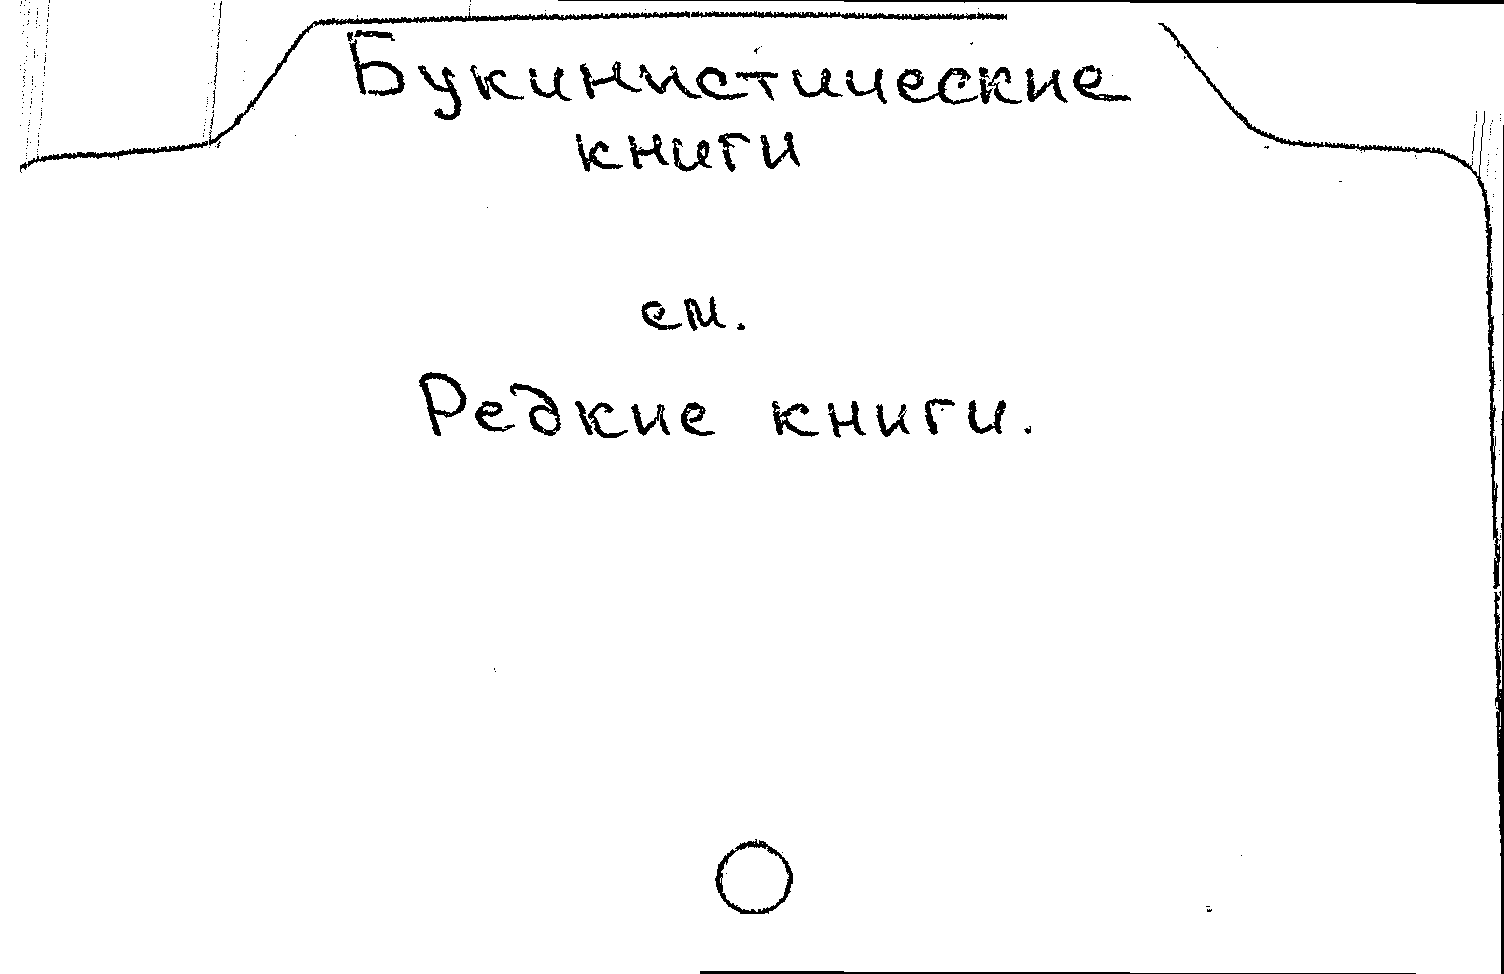 Букинистические
книги
см.
Редкие книги.